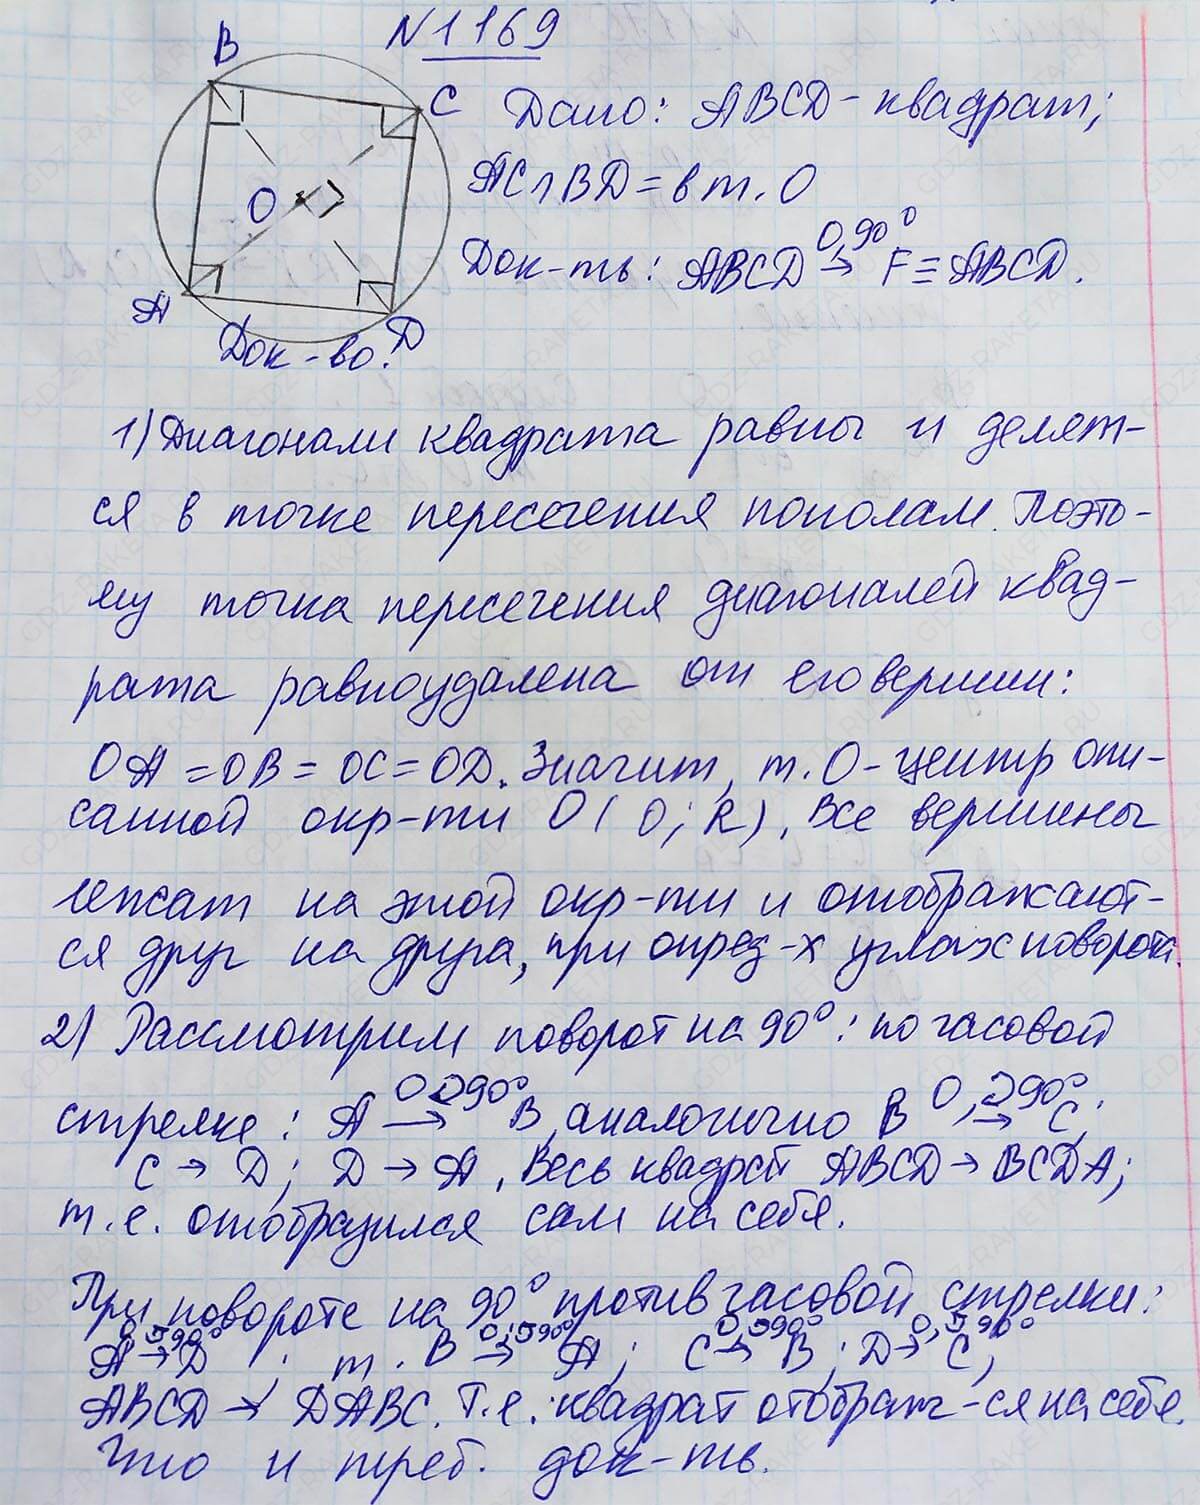 N 1169
B
C
O
A
D
Дано: ABCD - квадрат;
AC∩BD = в т. O
Док-ть: ABCD O,90° → F ≡ ABCD.
Док-во:
1) Диагонали квадрата равны и делят-
ся в точке пересечения пополам. Поэто-
му точка пересечения диагоналей квад-
рата равноудалена от его вершин:
OA = OB = OC = OD. Значит, т. O - центр опи-
санной окр-ти O(O; R), Все вершины
лежат на этой окр-ти и отображают-
ся друг на друга, при опред-х углах поворота.
2) Рассмотрим поворот на 90°: по часовой
стрелке: A O,90° → B, аналогично B O,90° → C;
C → D; D → A. Весь квадрат ABCD → BCDA;
т.е. отобразился сам на себя.
При повороте на 90° против часовой стрелки:
A O,90° → D; т. B O,90° → A; C O,90° → B; D O,90° → C;
ABCD → DABC. Т.е. квадрат отображ-ся на себя.
Что и треб. док-ть.
GDZ-RAKETA.RU